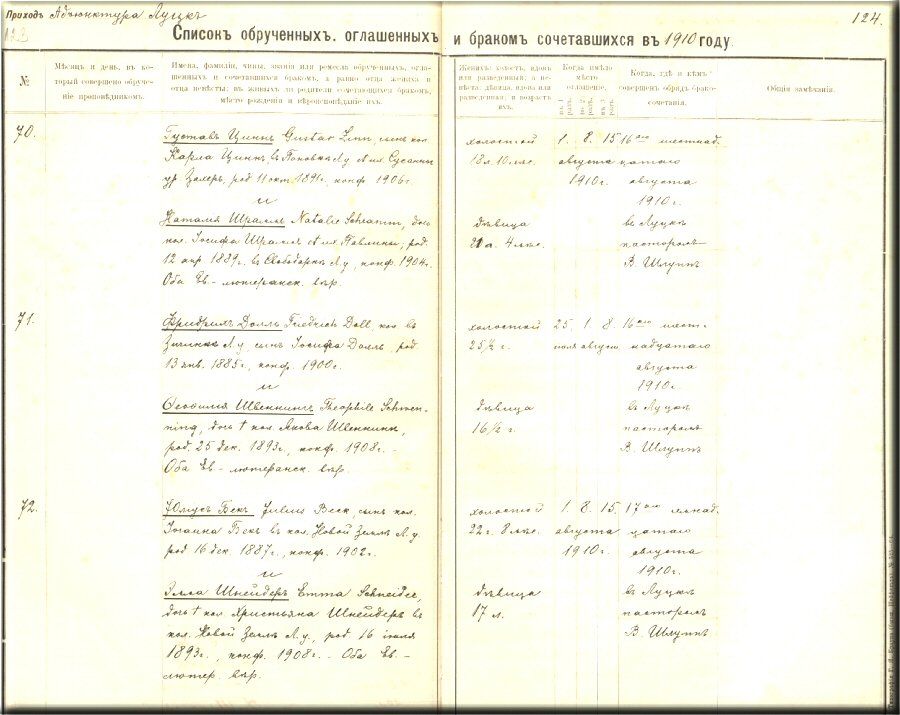 Приходъ Адъюнктура Луцкъ
124.
Списокъ обрученныхъ, оглашенныхъ и бракомъ сочетавшихся въ 1910 году.
№
Мѣсяцъ и день, въ ко-
торый совершено обруче-
ніе проповѣдникомъ.
Имена, фамиліи, чины, званія или ремесла обрученныхъ, огла-
шенныхъ и сочетавшихся бракомъ, а равно отца жениха и
отца невѣсты; въ живыхъ ли родители сочетающихся бракомъ,
мѣсто рожденія и вѣроисповѣданіе ихъ.
Женихъ: холостъ, вдовъ
или разведенный; а не-
вѣста: дѣвица, вдова или
разведенная, и возрастъ
ихъ.
Когда имѣло
мѣсто
оглашеніе.
въ 1 разъ.
въ 2 разъ.
въ 3 разъ.
Когда, гдѣ и кѣмъ
совершенъ обрядъ брако-
сочетанія.
Общія замѣчанія.
70.
Густавъ Циннъ Gustav Zinn, сынъ кол.
Карла Циннъ въ Поповка Л. у. и Сусанны
ур. Целеръ, род. 11 окт. 1891г., конф. 1906г.
и
Наталія Шраммъ Natalie Schramm, дочь
кол. Іосифа Шраммъ и Павлины; род.
12 апр. 1889г. въ Л. у., конф. 1904г.
Оба Ев.-лютеранск. вѣр.
холостой
18 л. 10 мѣс.
дѣвица
21 л. 4 мѣс.
1. 8. 15
августа
1910г.
16го шестнад-
цатаго
августа
1910г.
въ Луцкѣ
пасторомъ
В. Шлуппъ
71.
Фридрихъ Доллъ Friedrich Doll, кол. въ
Л. у. сынъ Іосифа Доллъ, род.
13 янв. 1885г., конф. 1900г.
и
Ѳеофилія Швеннингъ Theophile Schwen-
ning, дочь † кол. Якова Швеннингъ,
род. 25 дек. 1893г., конф. 1908г. -
Оба Ев.-лютеранск. вѣр.
холостой
25½ г.
дѣвица
16½ г.
25. 1. 8.
іюля август.
16го шест-
надцатаго
августа
1910г.
въ Луцкѣ
пасторомъ
В. Шлуппъ
72.
Юліусъ Бекъ Julius Beck, сынъ кол.
Іоганна Бекъ въ кол. Новой Землѣ Л. у.
род. 16 дек. 1887г., конф. 1902г.
и
Эмма Шнейдеръ Emma Schneider,
дочь † кол. Христьяна Шнейдеръ въ
кол. Новой Землѣ Л. у., род. 16 іюля
1893г., конф. 1908г. - Оба Ев.-
лютер. вѣр.
холостой
22 г. 8 мѣс.
дѣвица
17 л.
1. 8. 15.
августа
1910г.
17го семнад-
цатаго
августа
1910г.
въ Луцкѣ
пасторомъ
В. Шлуппъ